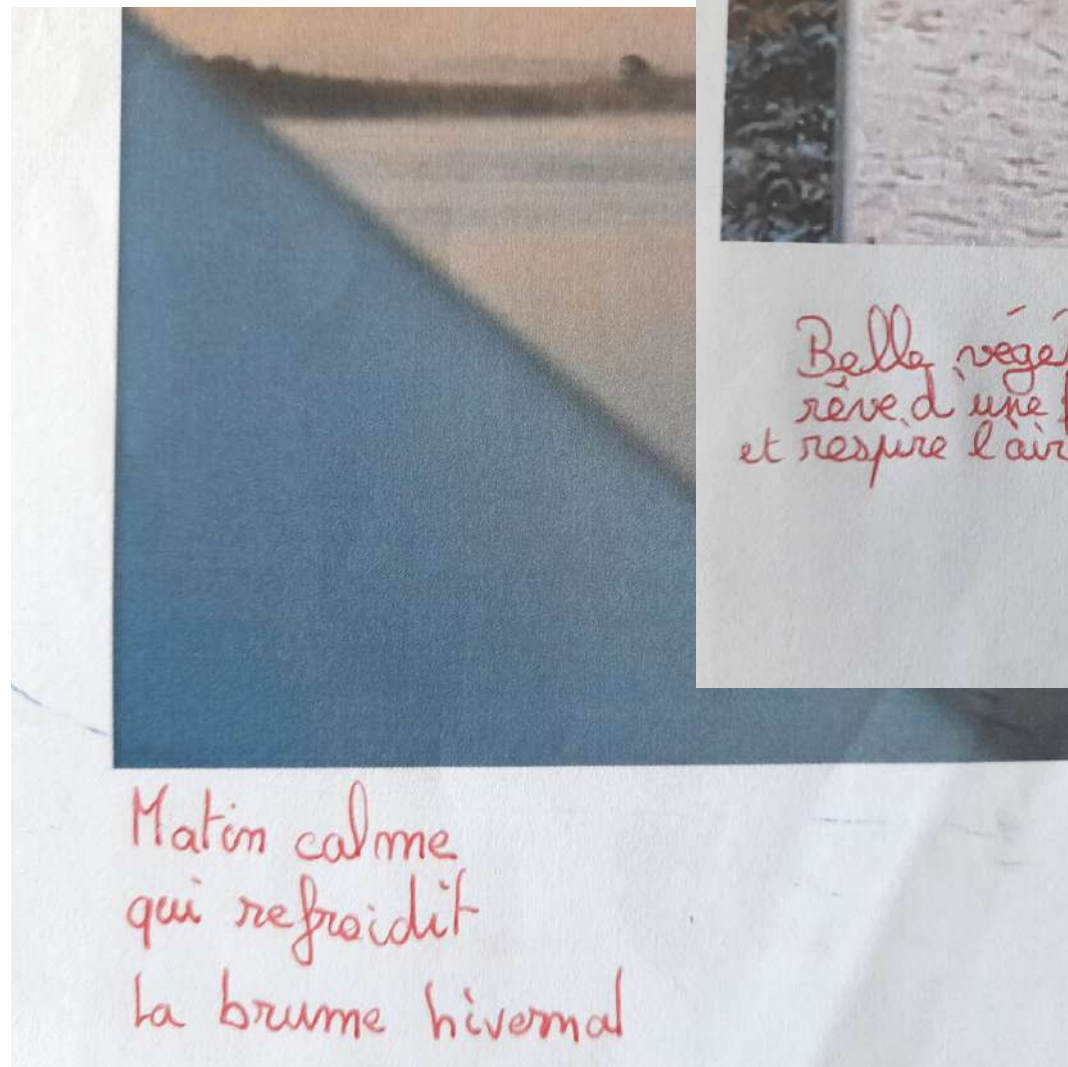 Belle
rêve d'une
et respire l'air
Matin calme
qui refroidit
la brume hivernal